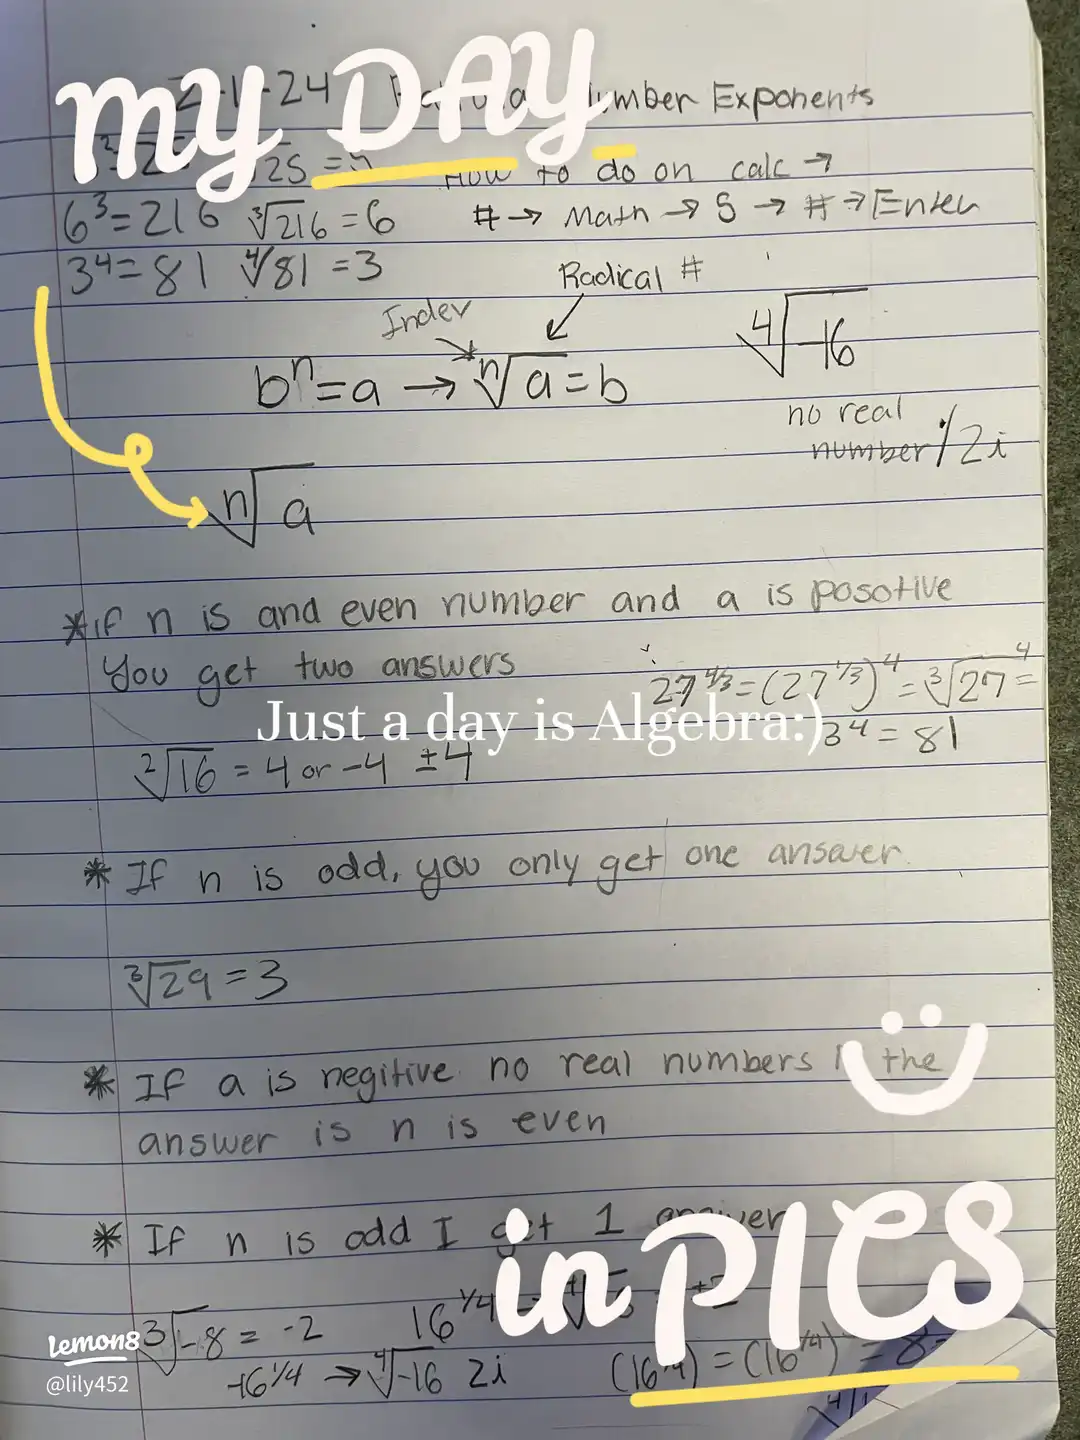 MY DAY
2-1-24 Number Exponents
How to do on calc →
6³=216 ∛216=6 #→ Math → 5 → # → Enter
3⁴=81 ∜81=3
Radical #
Index
bⁿ=a → ⁿ√a=b
∜-16
no real
number / 2i
ⁿ√a
*if n is and even number and a is posotive
You get two answers
27^4/3=(27^1/3)^4=∛27^4=
Just a day is Algebra:)
3⁴=81
²√16 = 4 or -4 ±4
* If n is odd, you only get one answer
∛29=3
* If a is negitive no real numbers the
answer is n is even
* If n is odd I get 1 answer
in PICS
∛-8 = -2 16^1/4
-16^1/4 → ∜-16 2i
Lemon8
@lily452